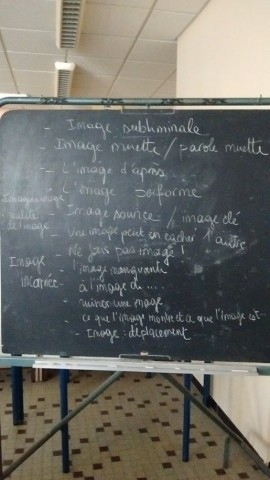 - Image subliminale
- Image muette / parole muette
- L'image d'après
- L'image
- Image source / image clé
- Une image peut en cacher 1 autre
- Ne fais pas image !
Image incarnée
réalité de l'image
- l'image manquante
- à l'image de ....
- ruiner une image
- ce que l'image montre et ce que l'image est
- Image : déplacement